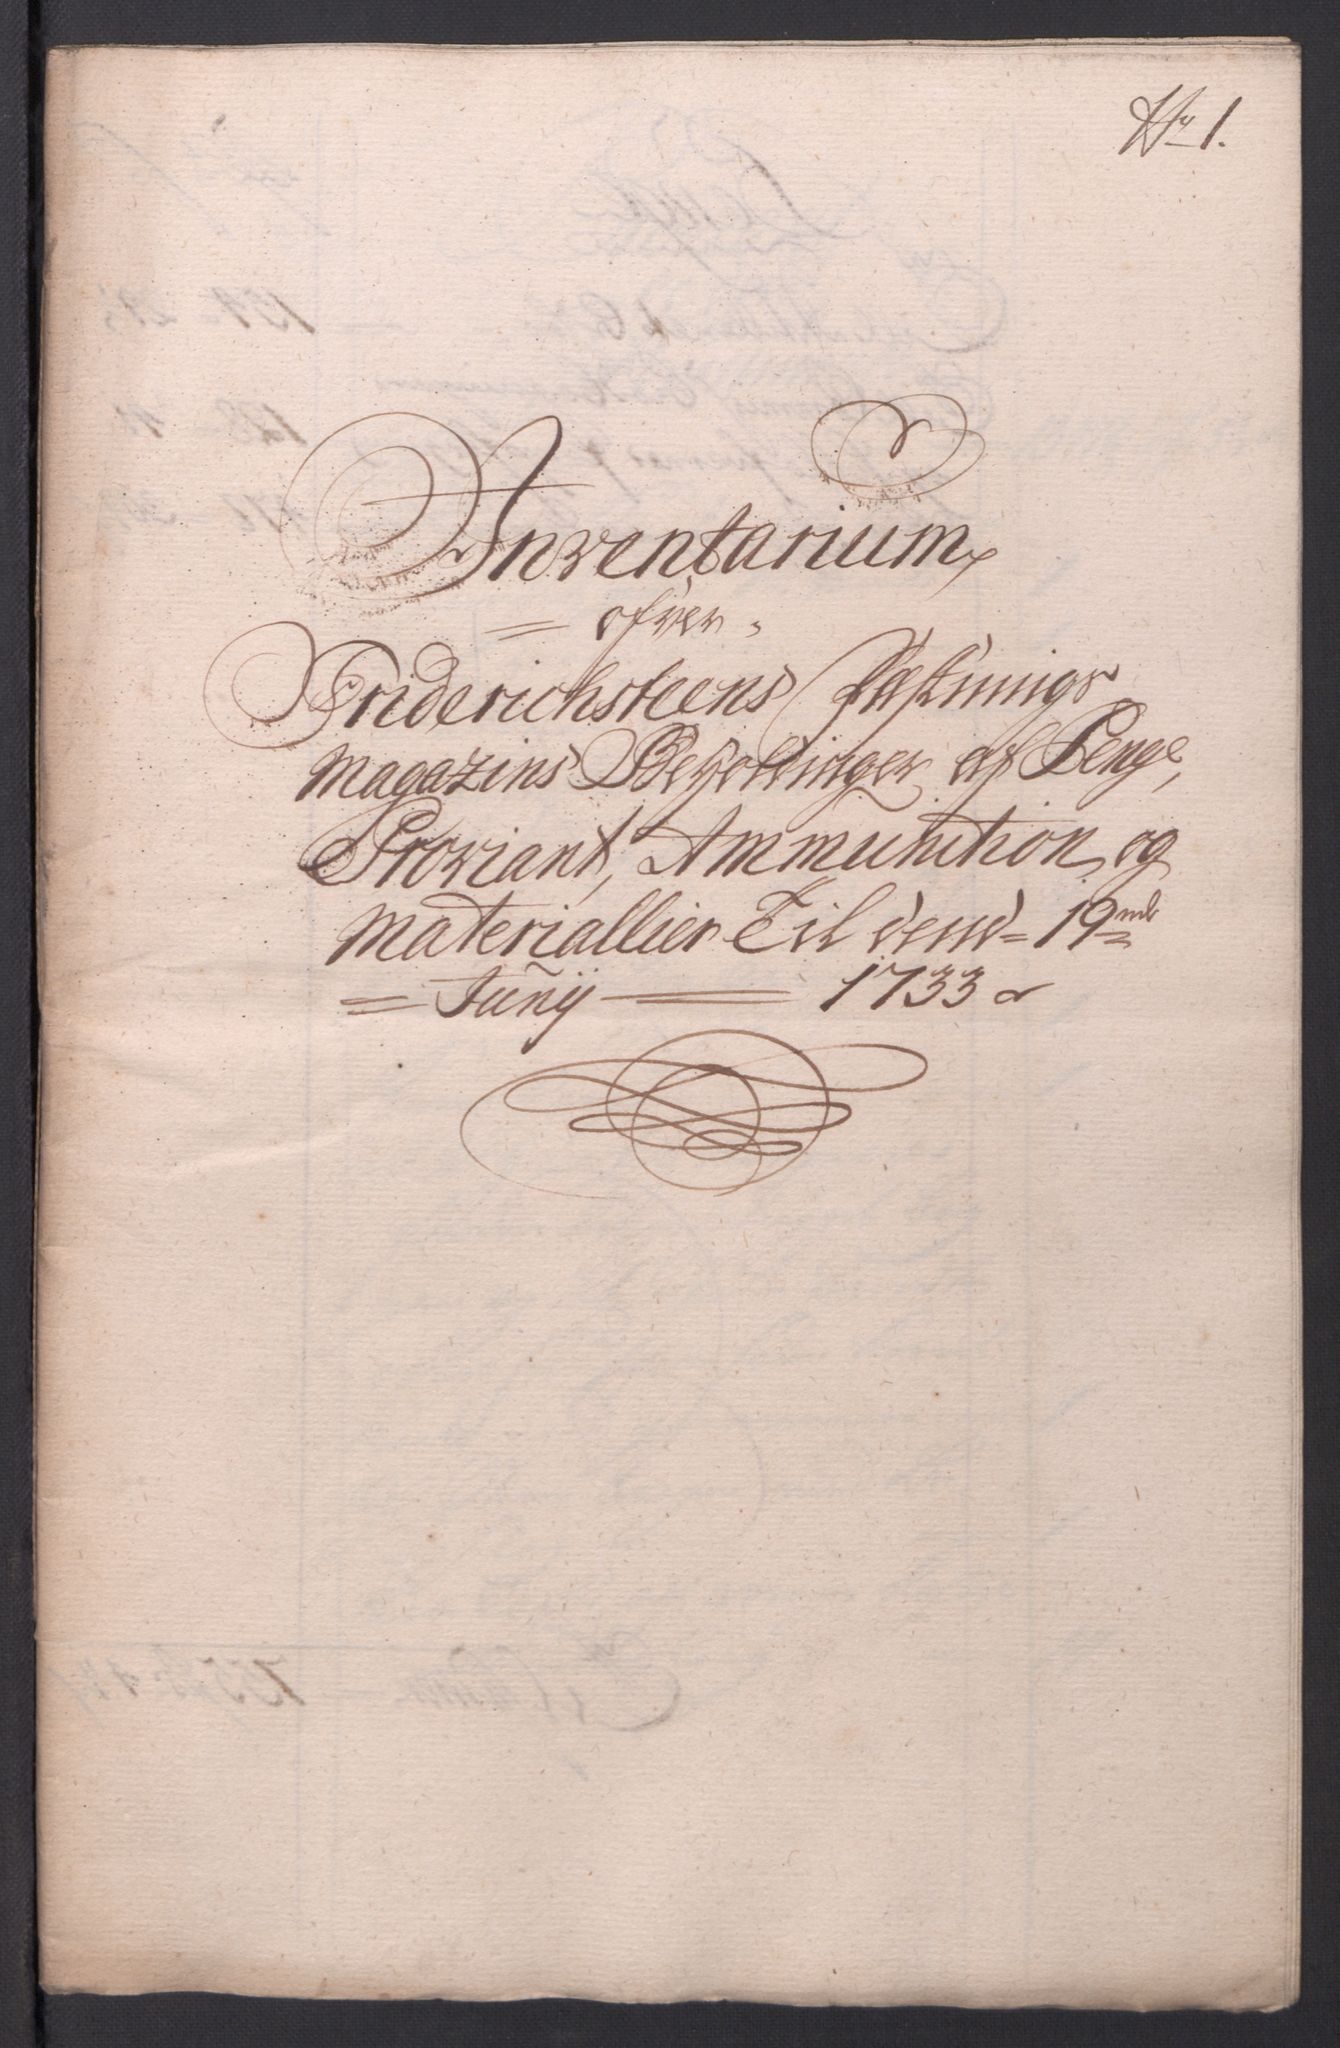 No 1.
Inventarium
ofver
Friderichsteens Fæstnings
Magazins Beholdinger af Penge,
Proviant, Ammunition og
Materiallier Til dend 19de
Junij 1733